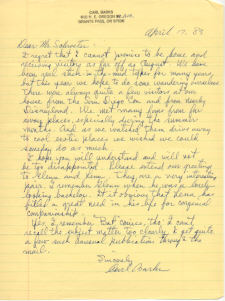 CARL BARKS
GRANTS PASS, OREGON
April 17, 83
Dear Mr.
I regret that I cannot promise to be home and
receiving visitors as far off as August. We have
been real stick-in-the-mud types for many years,
but this year we hope to do some wandering ourselves.
There were always quite a few visitors at our
house from the San Diego Con and from nearby
Disneyland. We met many fans from far
away places, especially during the summer
months. And as we watched them drive away
to cool exotic places we wished we could
someday do as much.
I hope you will understand and will not
be too disappointed. Please extend our greeting
to Glenn and Lena. They are a very interesting
pair. I remember Glenn when he was a lonely
looking bachelor. It is obvious that Lena has
filled a great need in his life for congenial
companionship.
Yes, I remember "Butt" comics, tho' I can't
recall the subject matter too clearly. I get quite
a few such unusual publications through the
mail.
Sincerely,
Carl Barks